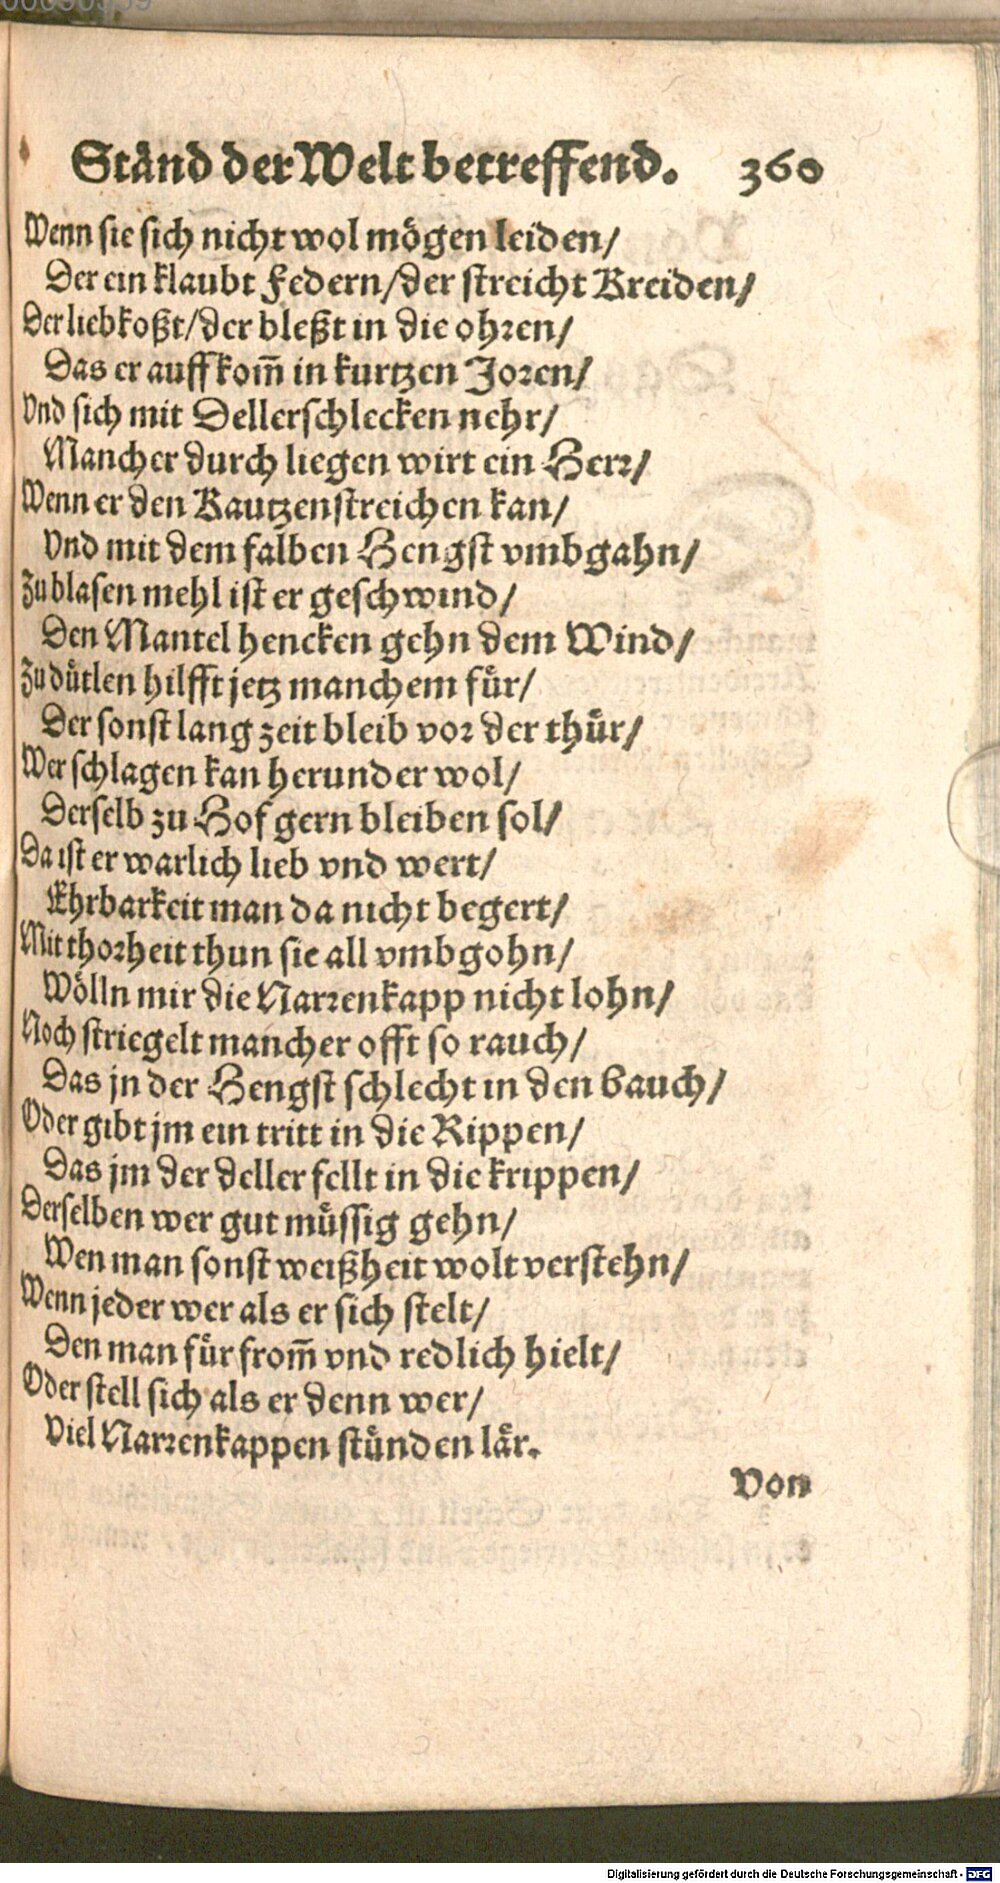 Stånd der Welt betreffend. 360
Wenn sie sich nicht wol mögen leiden/
Der ein klaubt Federn/der streicht Kreiden/
Der liebkoßt/der bleßt in die ohren/
Das er auff kom̃ in kurtzen Joren/
Vnd sich mit Dellerschlecken nehr/
Mancher durch liegen wirt ein Herr/
Wenn er den Kautzenstreichen kan/
Vnd mit dem falben Hengst vmbgahn/
Zu blasen mehl ist er geschwind/
Den Mantel hencken gehn dem Wind/
Zu dütlen hilfft jetz manchem für/
Der sonst lang zeit bleib vor der thür/
Wer schlagen kan herunder wol/
Derselb zu Hof gern bleiben sol/
Da ist er warlich lieb vnd wert/
Ehrbarkeit man da nicht begert/
Mit thorheit thun sie all vmbgohn/
Wölln mir die Narrenkapp nicht lohn/
Noch striegelt mancher offt so rauch/
Das jn der Hengst schlecht in den bauch/
Oder gibt jm ein tritt in die Rippen/
Das jm der deller fellt in die krippen/
Derselben wer gut müssig gehn/
Wen man sonst weißheit wolt verstehn/
Wenn jeder wer als er sich stelt/
Den man für from̃ vnd redlich hielt/
Oder stell sich als er denn wer/
Viel Narrenkappen stünden lär.
Von
Digitalisierung gefördert durch die Deutsche Forschungsgemeinschaft - DFG